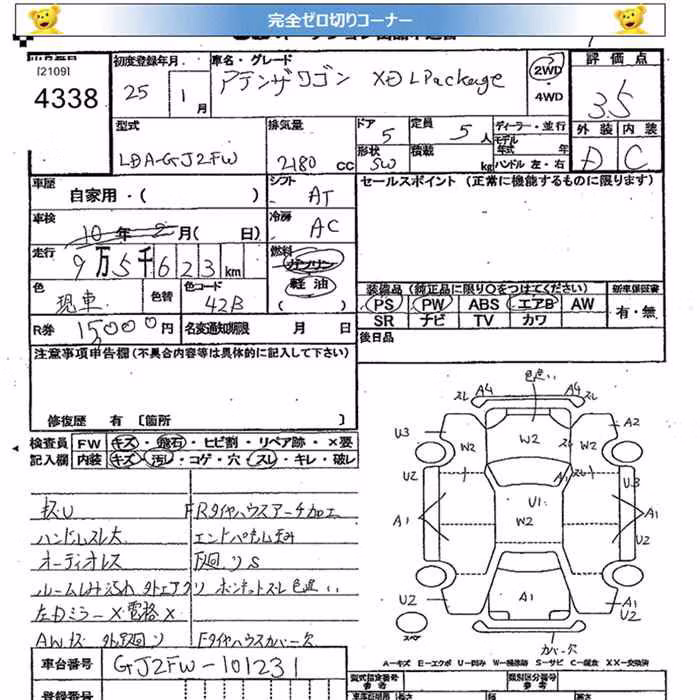 完全ゼロ切りコーナー
[2109]
4338
初度登録年月
25年 1月
車名・グレード
アテンザワゴン XD L Package
2WD
・4WD
評価点
3.5
外装 内装
D C
型式
LDA-GJ2FW
排気量
2180 cc
ドア
5
形状
SW
定員
5人
積載
kg
ディーラー・並行
モデル年式 年
ハンドル 左・右
車歴
自家用・( )
シフト
AT
セールスポイント (正常に機能するものに限ります)
車検
10年2月( 日)
冷房
AC
走行
9万5千623km
燃料
ガソリン
軽油
( )
色
現車
色替
色コード
42B
装備品 (純正品に限り○をつけてください)
PS PW ABS エアB AW
SR ナビ TV カワ
新車保証書
有・無
R券 15000円
名変通知期限 月 日
後日品
注意事項申告欄 (不具合内容等は具体的に記入して下さい)
修復歴 有 〔箇所 〕
検査員 FW キズ・飛石・ヒビ割・リペア跡・×要
記入欄 内装 キズ・汚レ・コゲ・穴・スレ・キレ・破レ
キズU
FRタイヤハウスアーチ加工
ハンドルスレ大
オーディオレス
下廻りS
左Dミラー×電格×
Fタイヤハウスカバー欠
色違い
スレ A4 A4 スレ
U3 W2 W2 W2 スレ A2
U2 A1 スレ U3
A1 U1 W2 A1
U2
U2 A1 A1 U2
スペア
カバー欠
A―キズ E―エクボ U―凹み W―補修跡 S―サビ C―腐食 XX―交換済
車台番号
GJ2FW-101231
登録番号
型式指定番号
類別区分番号